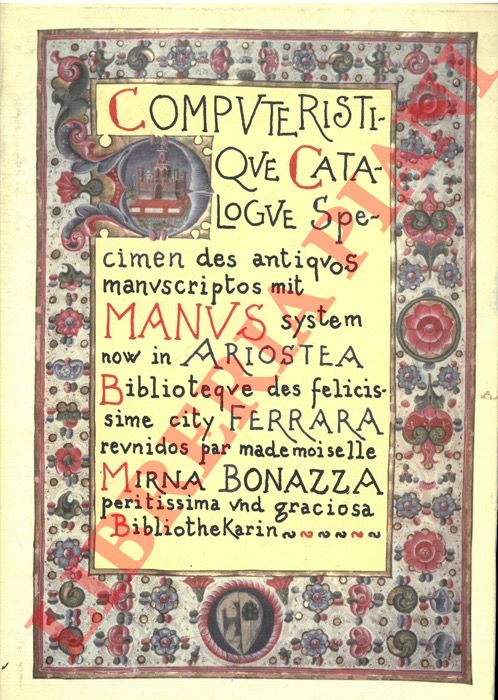 COMPVTERISTI-
QVE CATA-
LOGVE Spe-
cimen des antiqvos
manvscriptos mit
MANVS system
now in ARIOSTEA
Biblioteqve des felicis-
sime city FERRARA
revnidos par mademoiselle
MIRNA BONAZZA
peritissima vnd graciosa
BibliotheKarin
LIBRERIA PIANI